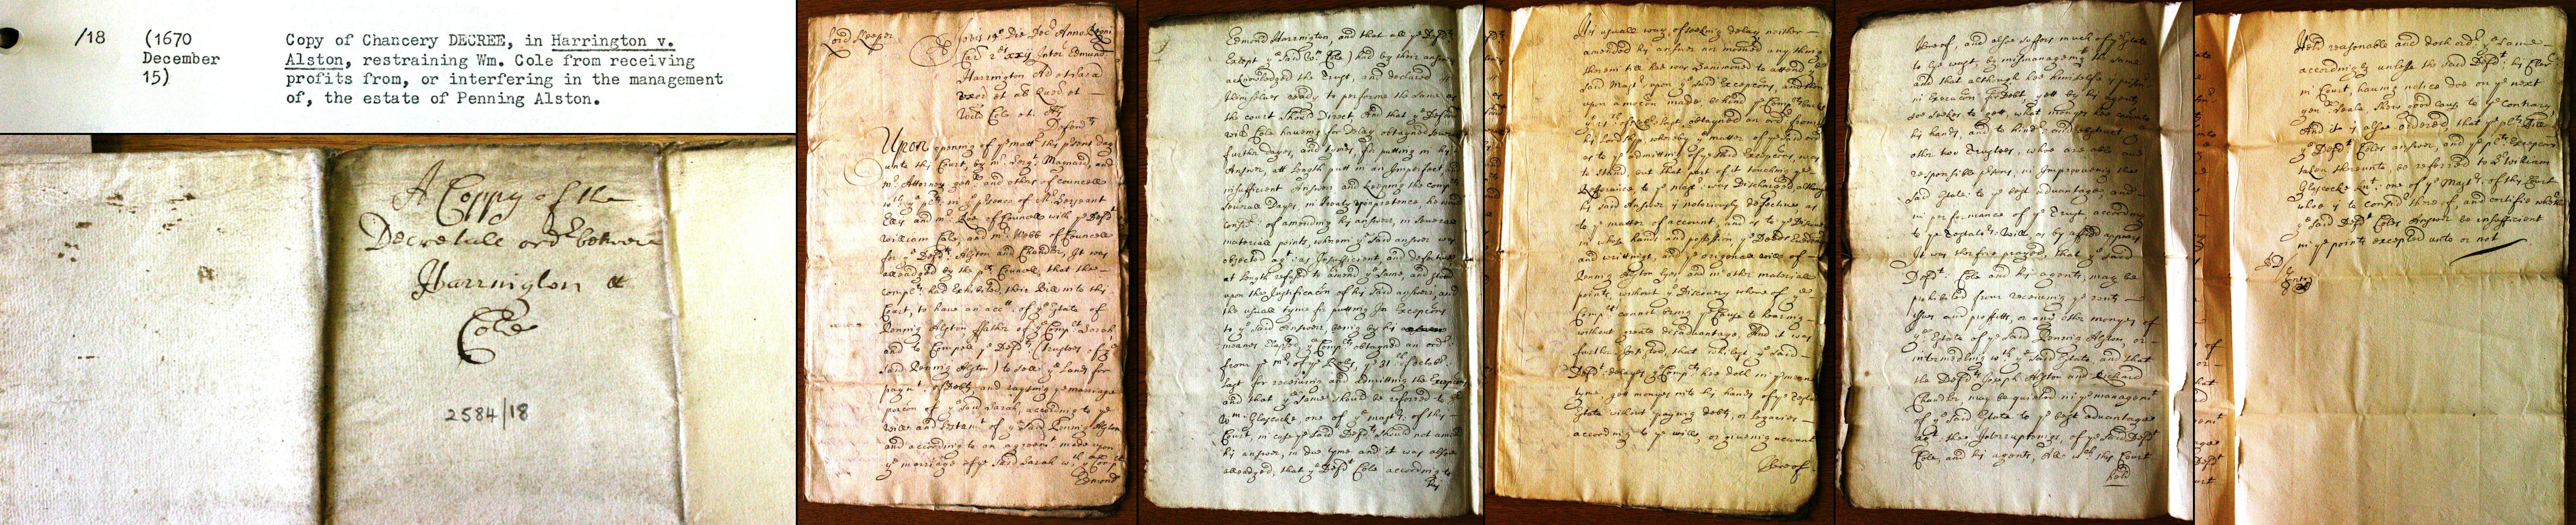 /18 (1670 December 15) Copy of Chancery DECREE, in Harrington v.
Alston, restraining Wm. Cole from receiving
profits from, or interfering in the management
of, the estate of Penning Alston.
A Coppy of the
Decretall ordr betweene
Harrington &
Cole
2584/18
Lord Keeper
Jovis 15o Die Decr Anno Regni
Car 2d xxij Inter Edmund
Harrington
Willm Cole et
Defendts
Upon opening of ye mattr this psent day
unto this Court, by mr Sergt Maynard, and
mr Attorney and others of councell
wth ye plts in ye psence of Mr Serjeant
Ellis and mr of Councell with ye Defdt
William Cole, and mr Webb of Councell
for ye Defdts Alston and Chandler, It was
alleadged by the plts Councell, that the
complts had Exhibited, their Bill into this
Court, to have an acct of ye Estate of
Penning Alston ffather of ye Complt Sarah
and to Compell ye Defdts (trustees of ye
said Penning Alston) to sell ye Lands for
paymt of Debts, and raysing ye marriage
porcon of ye said Sarah, according to ye
will and testamt of ye said Penning Alston
and according to an agreemt made upon
ye marriage of ye said Sarah wth ye Complt
Edmond
Edmond Harrington, and that all ye Defdts
Except ye said Wm Cole) had by their answer
acknowledged the trust, and declared
themselves ready to performe the same as
the court should Direct, And that ye Defendt
Will Cole haveing for Delay obtayned severall
further dayes, and tymes, for putting in his
Answer, att length putt in an Imperfect, and
insufficient Answer and keeping the complts
severall Dayes, in treaty
of amending his answer, in severall
materiall points, wherein ye said answer was
objected agt as Insufficient, and defective
at length refused to amend ye same, and stood
upon the Justificacon of his said answer, and
the usuall tyme for putting in Excepcons
to ye said Answer, being by his
meanes Elapsed, ye Complts obtayned an ordr
from ye mr of ye Rolls, ye 31th of Octobr
last for receiving and admitting the Excepcons
and that ye same should be referred to Sr
Wm Glascocke one of ye mastrs of this
Court, in case ye said Defdt should not amend
his answer, in due tyme and it was alsoe
alleadged, that ye Defdt Cole according to
his
His usuall way of seeking delay neither
amended his answer nor moved any thing
therein till hee was summoned to attend ye
said Mastr upon ye said Excepcons, and then
upon a mocon made behind ye Complts backs
last, obtayned an order from
his Lordshipp, whereby ye matter of ye said ordr
as to ye admitting of ye said Excepcons, was
to stand, but that part of it touching ye
Refference to ye mastr was Discharged, although
his said Answer is notoriously defective as
to ye matter of account, and as to ye Discovery
in whose hands and possession, ye Deeds Evidences
and writtings, and ye originall will of
Penning Alston lyes and in other materiall
points, without ye discovery whereof ye
Complts cannot bring ye Cause to hearing
without greate disadvantage, And it was
further Insisted, that whilest ye said
Defdt delayes ye Complts hee doth in ye meane
tyme, gett moneys into his hands of ye testators
Estate without paying debts, or legacies
according to ye will, or giveing account
thereof
thereof, and alsoe suffers much of ye Estate
to lye wast, by mismanageing the same
and that although hee himselfe is
in Execucon for Debt yett by his agents
hee seekes to gett, what moneys hee can into
his hands, and to hinder and obstruct ye
other two trustees, whoe are able and
responsible psons, in Improveing the
said Estate to ye best advantage and
in performance of ye trust according
to ye testators Will as by affidt appeares
It was therfore prayed, that ye said
Defdt Cole and his agents, may be
prohibited from receiving ye rents
issues and proffitts, or any other moneys of
ye Estate of ye said Penning Alston, or
intermedling wth ye said Estate, and that
the Defdts Joseph Alston and Richard
Chandler, may be quieted in ye managemt
of ye said Estate to ye best advantage
agt the Interruptions, of ye said Defdt
Cole, and his agents, All wch this Court
held
Held reasonable and doth ordr ye same
accordingly unlesse the said Defdt his Clerke
in Court, having notice doe on ye next
Seale shew good cause to ye contrary
And it is alsoe ordered, that ye plts Bill
ye Defdt Coles answer, and ye plts Excepcons
taken thereunto be referred to Sr William
Glascocke Knt one of ye Mastrs of this Court
whoe is to considr thereof, and certifie whether
ye said Defdt Coles Answer be insufficient
in ye points excepted unto or not